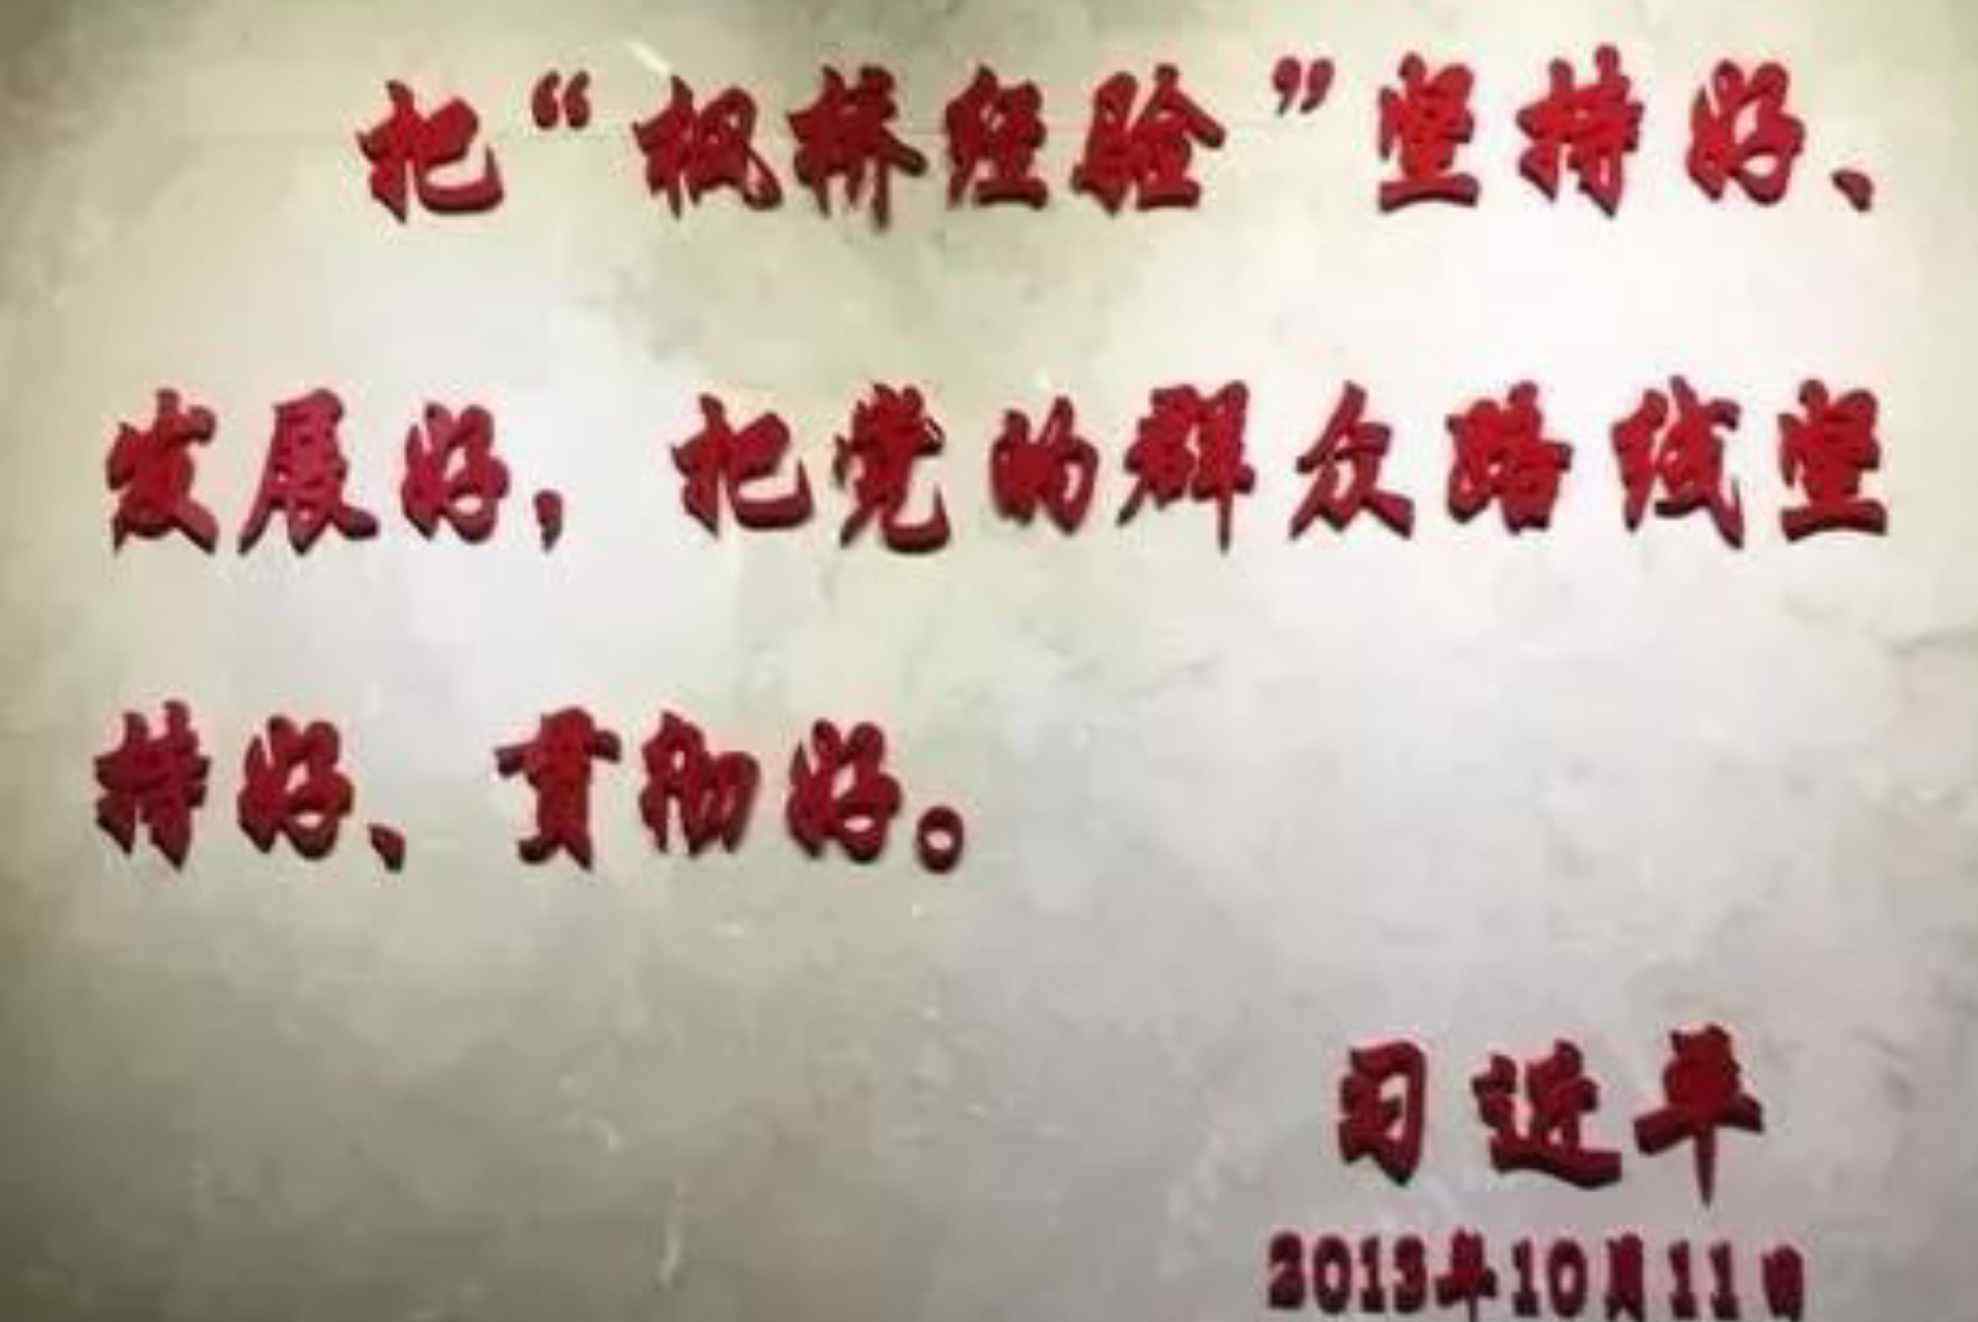 把“枫桥经验”坚持好、
发展好，把党的群众路线坚
持好、贯彻好。
习近平
2013年10月11日